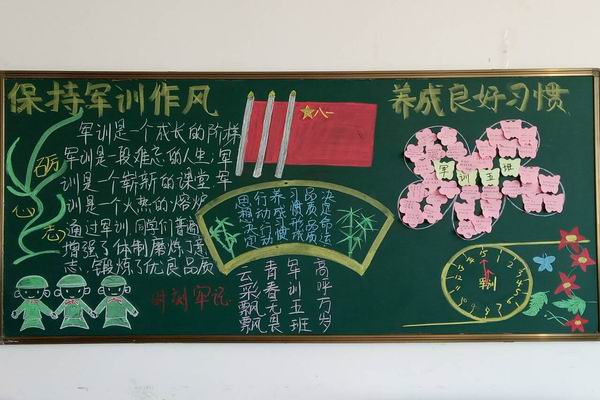 保持军训作风
砺心志
军训是一个成长的阶梯
军训是一段难忘的人生,军
训是一个崭新的课堂军
训是一个火热的熔炉
通过军训,同学们普遍
增强了体制磨炼了意
志,锻炼了优良品质
时刻牢记
八一
思想决定
行动行动
养成习惯
习惯形成
品质品质
决定命运
高呼万岁
军训五班
青春无畏
云彩飘飘
养成良好习惯
军训五班
军训